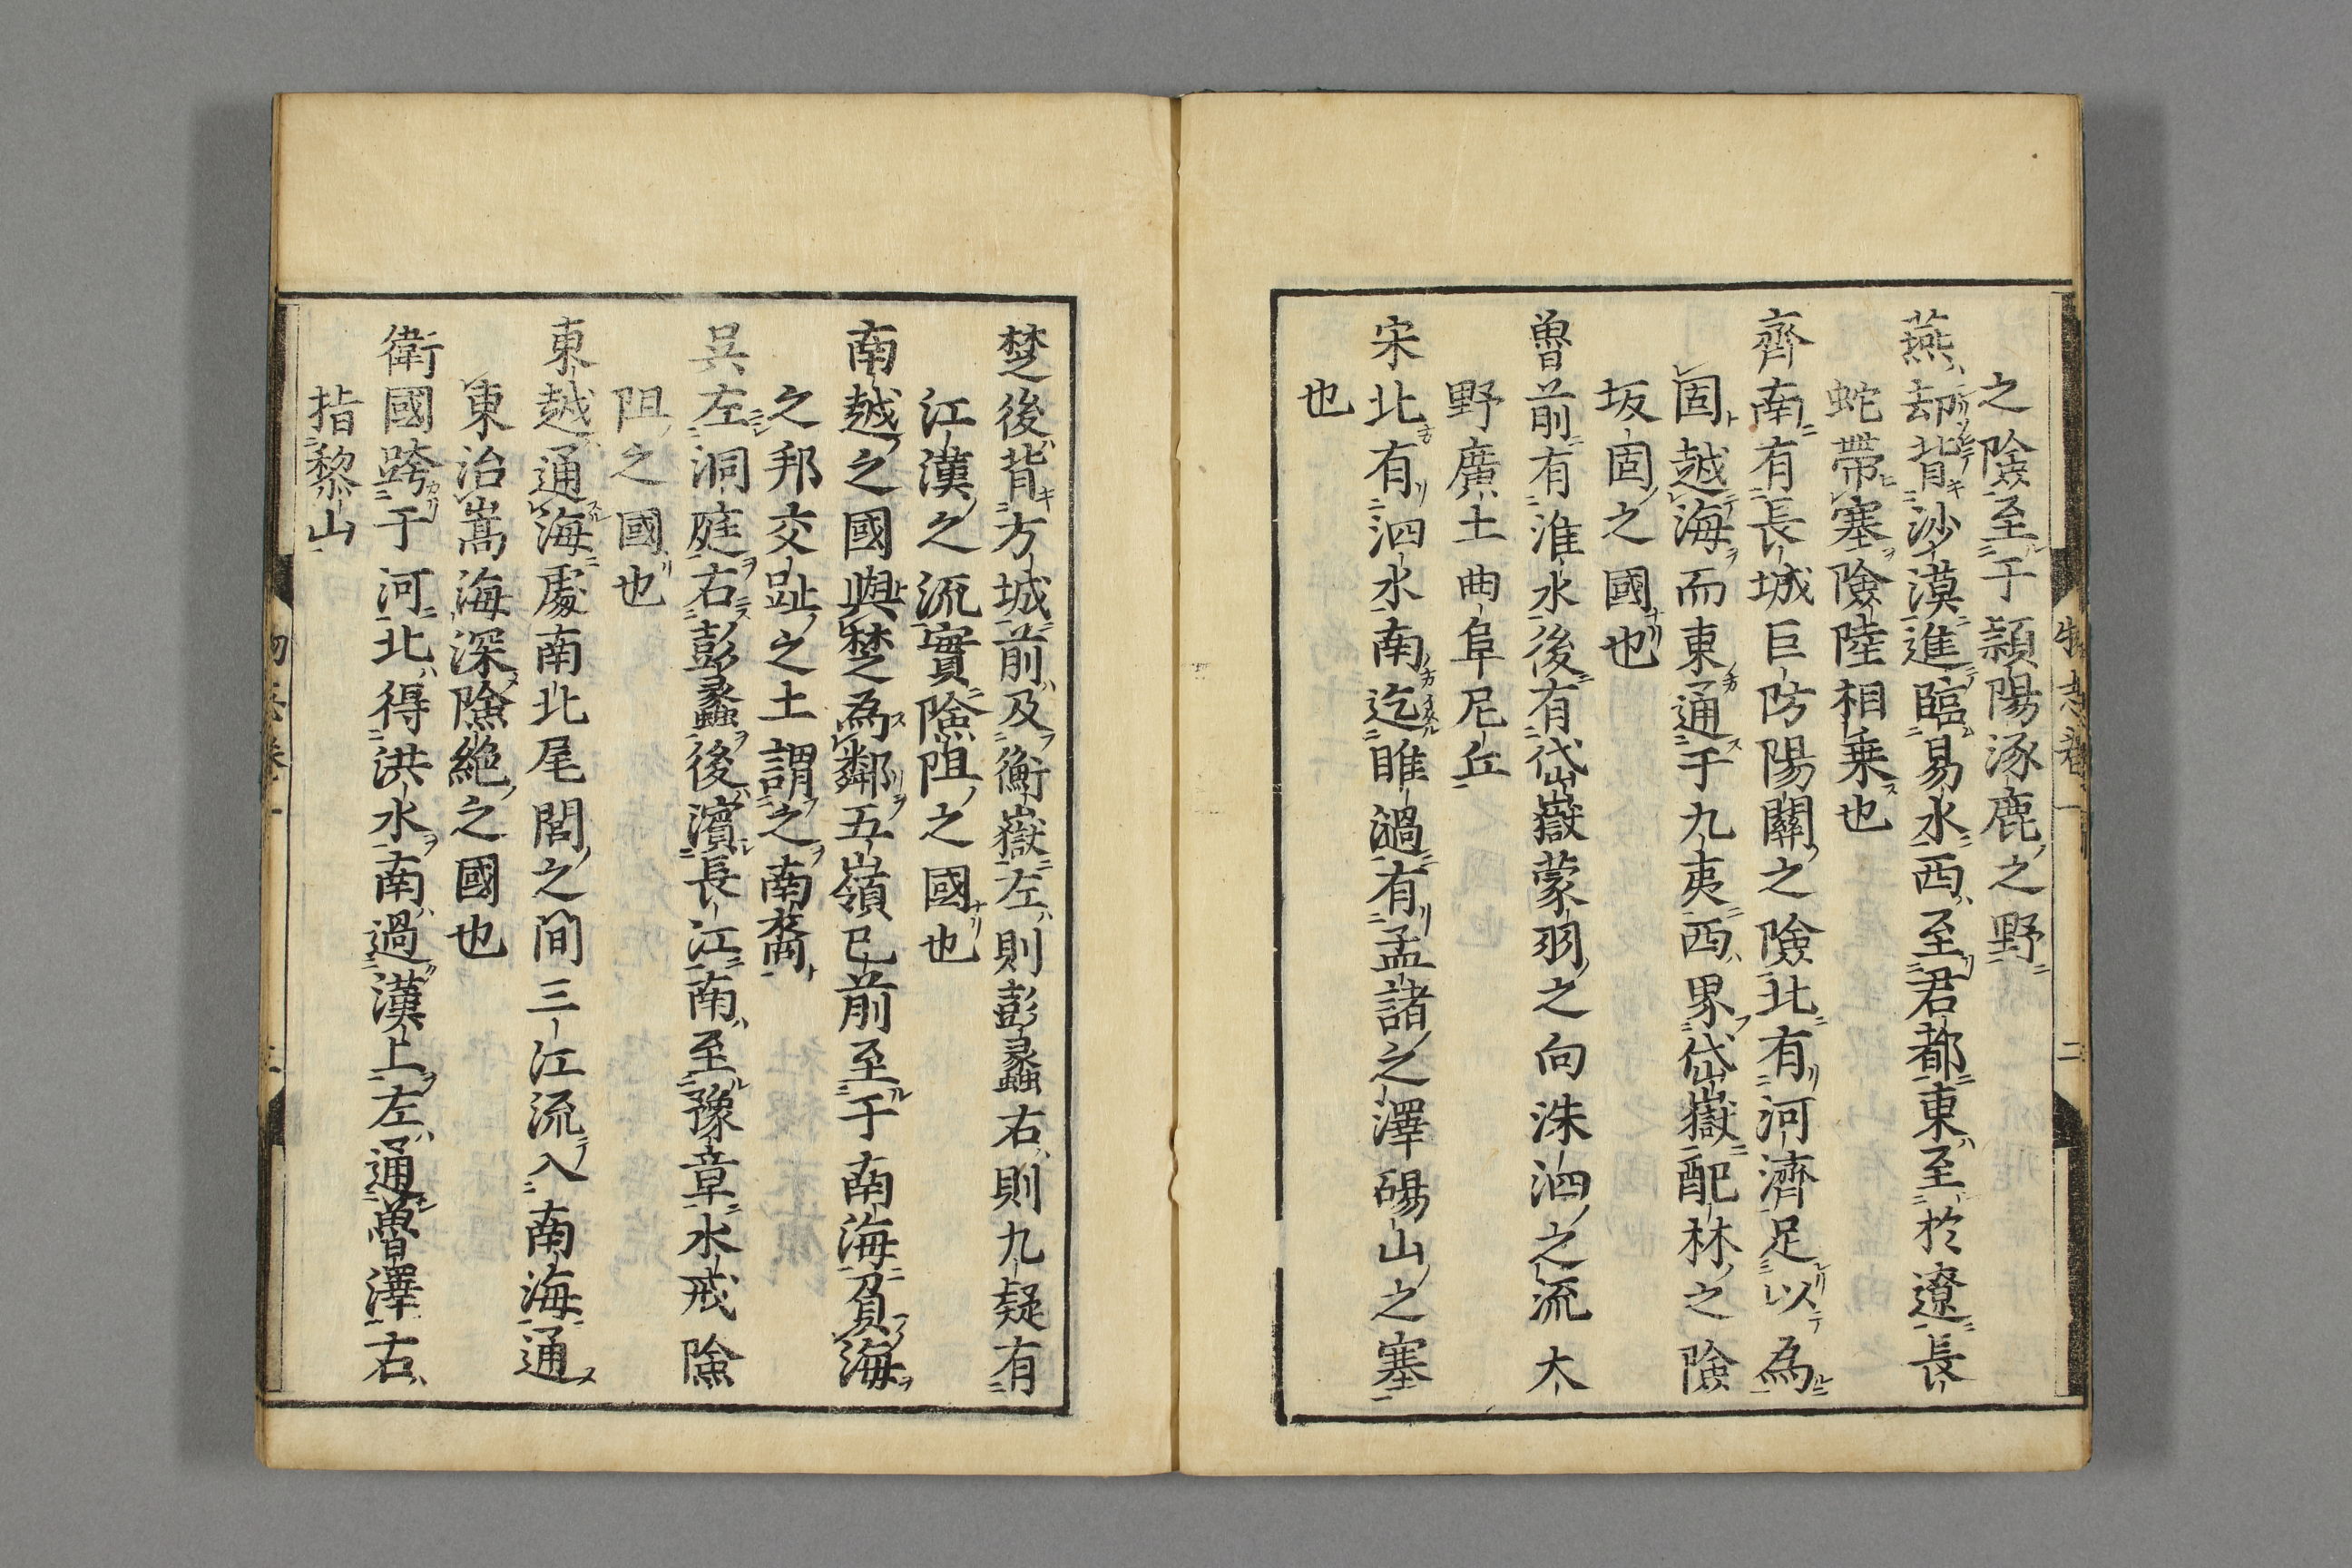 之險至于潁陽涿鹿之野
燕却背沙漠進臨易水西至君都東至於遼長
蛇帶塞險陸相乗也
齊南有長城巨防陽關之險北有河濟足以為
固越海而東通于九夷西界岱嶽配林之險
坂固之國也
魯前有淮水後有岱嶽蒙羽之向洙泗之流大
野廣土曲阜尼丘
宋北有泗水南迄睢濄有孟諸之澤碭山之塞
也
楚後背方城前及衡嶽左則彭蠡右則九疑有
江漢之流實險阻之國也
南越之國與楚為鄰五嶺已前至于南海負海
之邦交趾之土謂之南裔
吳左洞庭右彭蠡後濱長江南至豫章水戒險
阻之國也
東越通海處南北尾閭之間三江流入南海通
東治嵩海深險絶之國也
衛國跨于河北得洪水南過漢上左通魯澤右
指黎山